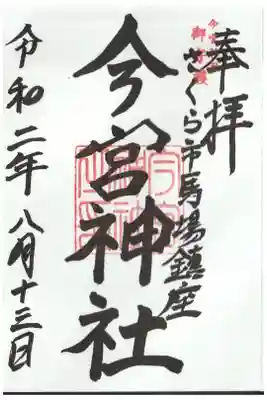 奉拝
さくら市馬場鎮座
今宮神社
令和二年八月十三日